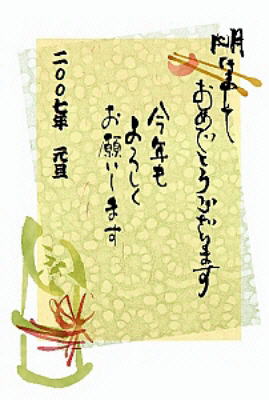 明けまして
おめでとうございます
今年も
よろしく
お願いします
二〇〇七年 元旦